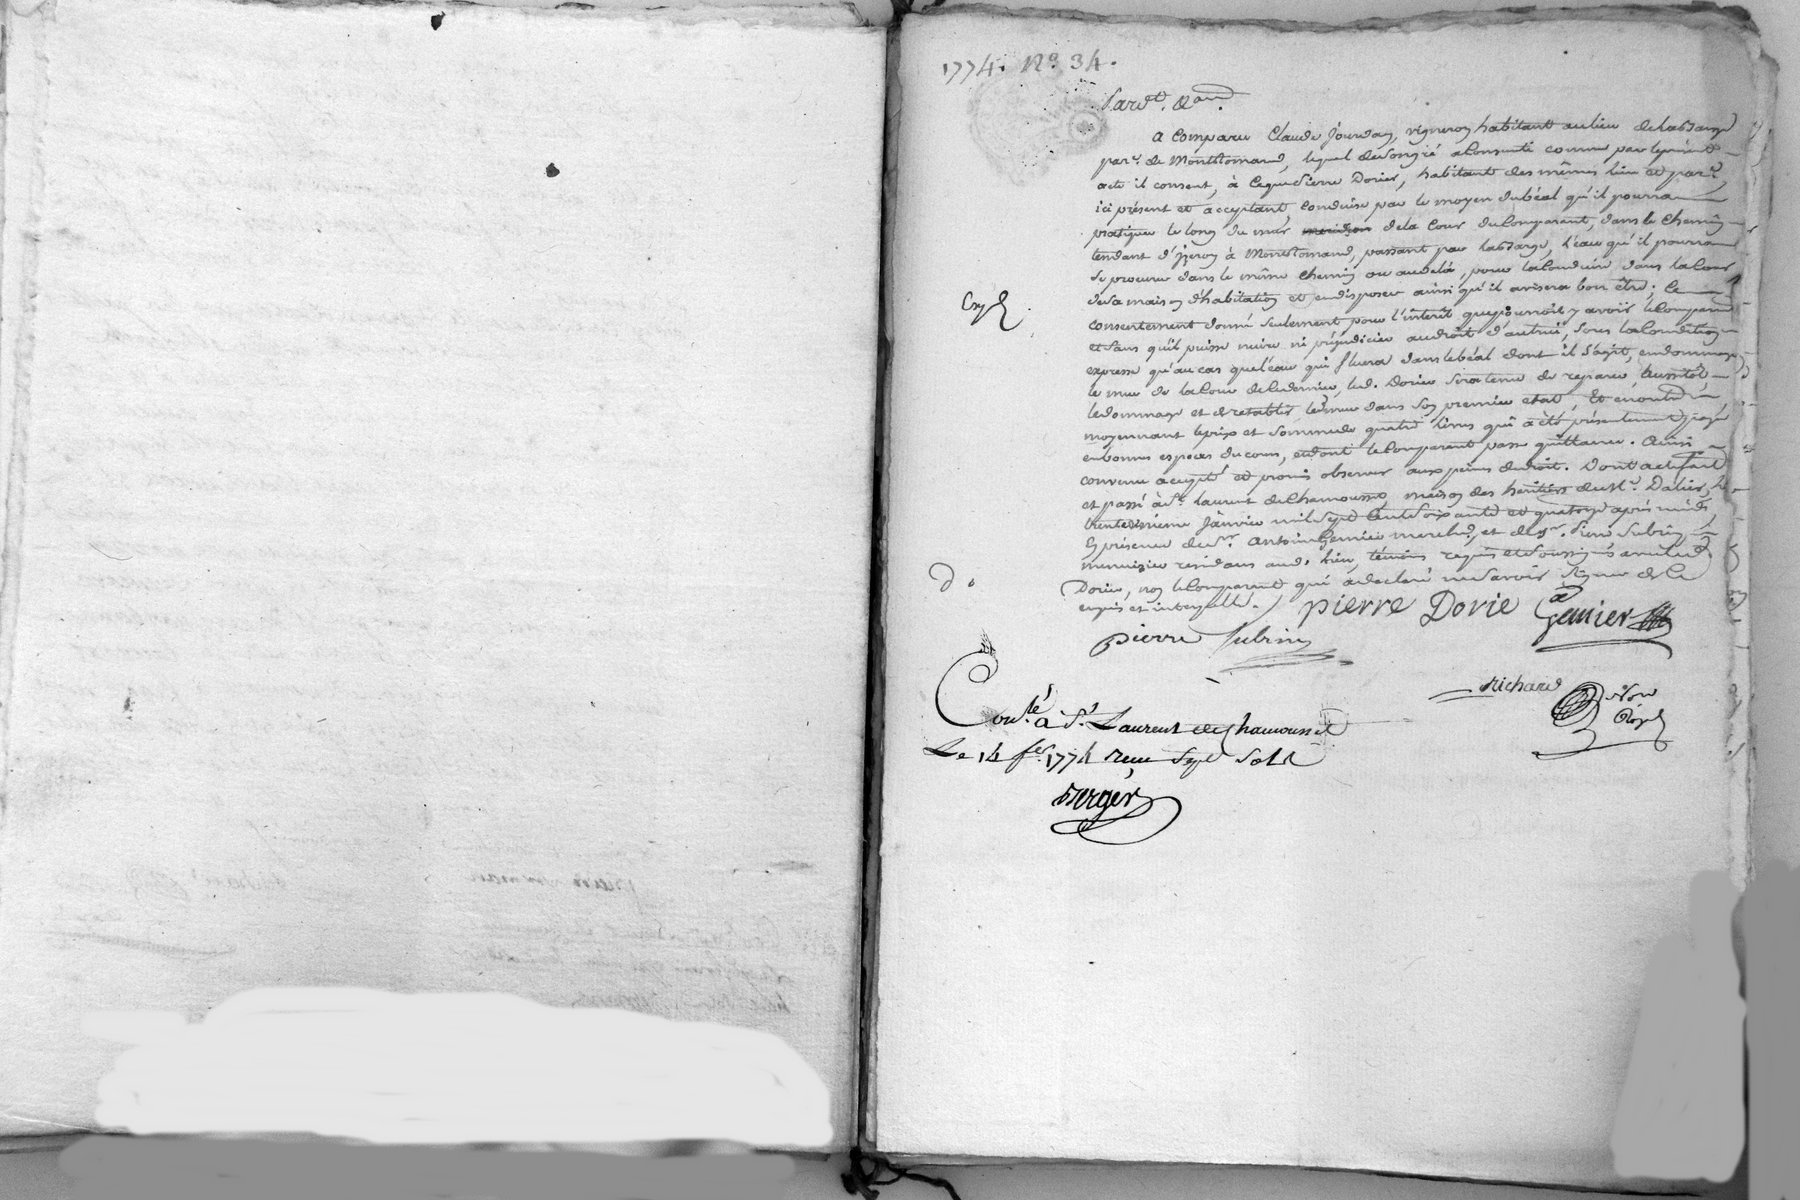 1774. No. 34.
Pardt. &a.
a comparu Claude Jourdan, vigneron habitant au lieu de
par.e de Montromand, lequel de son gré a consenti comme par le présent
acte il consent, à ce que Pierre Dorier, habitant des mêmes lieu et par.e
ici présent et acceptant, conduise par le moyen du béal qu'il pourra
pratiquer le long du mur de la Cour du Comparant, dans le chemin
tendant d'yzeron à Montromand, passant par l'eau qu'il pourra
se procurer dans le même chemin ou au delà, pour la conduire dans la Cour
de sa maison d'habitation et en disposer ainsi qu'il avisera bon être; Ce
consentement donné seulement pour l'intérêt que pourroit y avoir le Comparant
et sans qu'il puisse nuire ni préjudicier au droit d'autrui, sous la Condition
expresse qu'au cas que l'eau qui fluera dans le béal dont il s'agit, endommage
le mur de la Cour de Jourdan, led. Dorier sera tenu de réparer aussitôt
le dommage et de rétablir le mur dans son premier etat, Et en outre
moyennant le prix et somme de quatre livres qui a été présentement payé
en bonnes especes du cours, et dont le Comparant passe quittance. Ainsi
convenu accepté et promis observer aux peines de droit. Dont acte fait
et passé à St. laurent de Chamousset, maison des héritiers du Sr. Dalier, le
trentedeuxieme Janvier mil sept Cent soixante et quatorze après midi,
En présence de Sr. Antoine Genier march.d, et de Sr. Pierre Subrin
menuisier résidans aud. lieu, témoins requis et soussignés avec led.
Dorier, non le Comparant qui a declaré ne savoir signer de ce
enquis et interpellé.
Exp.
d.o
pierre Dorie
Genier
pierre subrin
richard
No.re Royal
Con.lé à St. Laurent de Chamousset
Le 14 fer. 1774 reçu Sept Sols
Berger